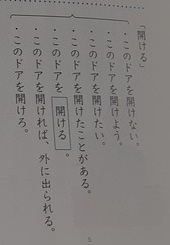 「開ける」
・このドアを開けない。
・このドアを開けよう。
・このドアを開けたい。
・このドアを開けたことがある。
・このドアを開ける。
・このドアを開ければ、外に出られる。
・このドアを開けろ。